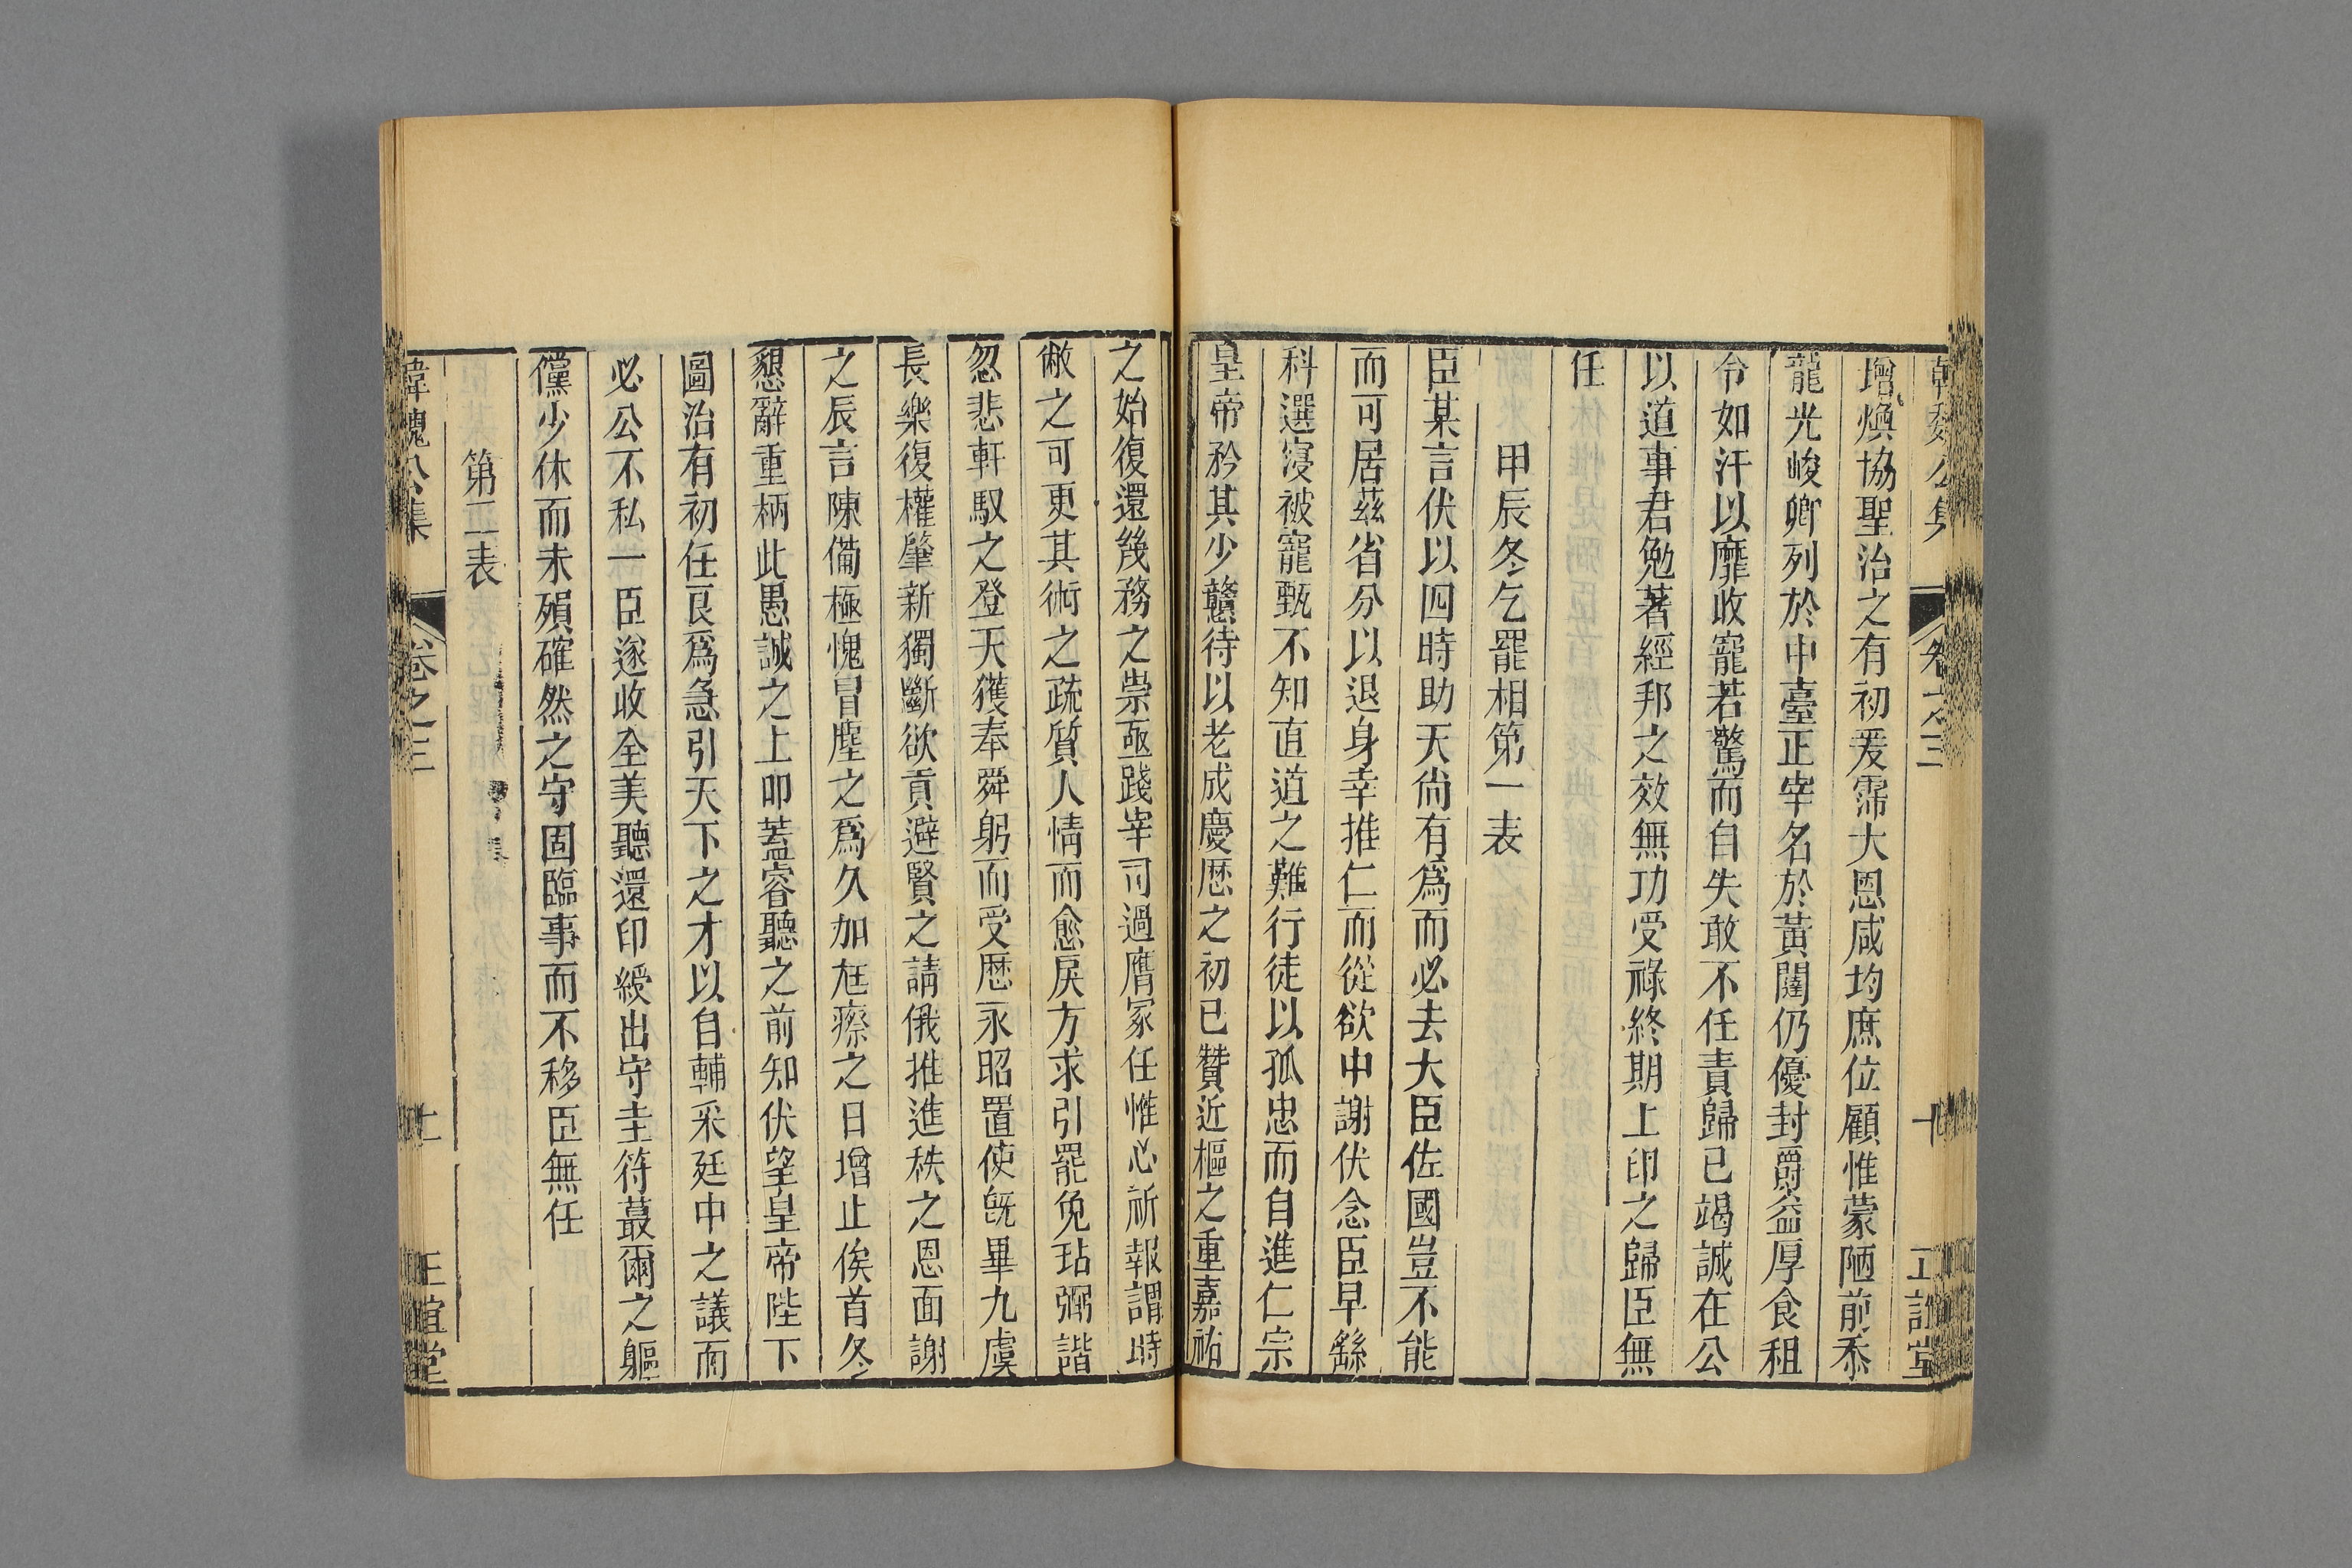 韓魏公集 卷之三 十 正誼堂
增煥協聖治之有初爰霈大恩咸均庶位顧惟蒙陋前忝
寵光峻卿列於中臺正宰名於黃闥仍優封爵益厚食租
令如汗以靡收寵若驚而自失敢不任責歸已竭誠在公
以道事君勉著經邦之效無功受祿終期上印之歸臣無
任
甲辰冬乞罷相第一表
臣某言伏以四時助天尚有爲而必去大臣佐國豈不能
而可居茲省分以退身幸推仁而從欲中謝伏念臣早繇
科選寖被寵甄不知直道之難行徒以孤忠而自進仁宗
皇帝矜其少戇待以老成慶歷之初已贊近樞之重嘉祐
之始復還幾務之崇亟踐宰司過膺冢任惟心祈報謂時
敝之可更其術之疏質人情而愈戾方求引罷免玷弼諧
忽悲軒馭之登天獲奉舜躬而受歷永昭置使旣畢九虞
長樂復權肇新獨斷欲貢避賢之請俄推進秩之恩面謝
之辰言陳備極愧冒塵之爲久加尫瘵之日增止俟首冬
懇辭重柄此愚誠之上叩蓋睿聽之前知伏望皇帝陛下
圖治有初任良爲急引天下之才以自輔采廷中之議而
必公不私一臣遂收全美聽還印綬出守圭符蕞爾之軀
儻少休而未殞確然之守固臨事而不移臣無任
第二表
韓魏公集 卷之三 十一 正誼堂